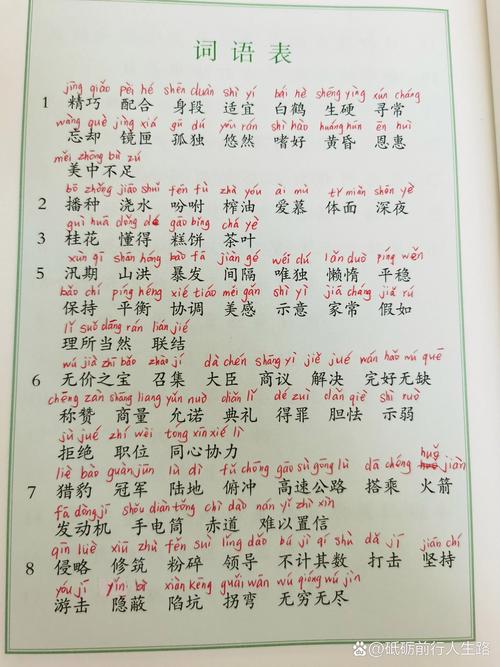 词语表
jīng qiǎo pèi hé shēn duàn shì yí bái hè shēng yìng xún cháng
1 精巧 配合 身段 适宜 白鹤 生硬 寻常
wàng què jìng xiá gū dú yōu rán shì hào huáng hūn ēn huì
忘却 镜匣 孤独 悠然 嗜好 黄昏 恩惠
měi zhōng bù zú
美中不足
bō zhǒng jiāo shuǐ fēn fù zhà yóu ài mù tǐ miàn shēn yè
2 播种 浇水 吩咐 榨油 爱慕 体面 深夜
guì huā dǒng dé gāo bǐng chá yè
3 桂花 懂得 糕饼 茶叶
xùn qī shān hóng bào fā jiàn gé wéi dú lǎn duò píng wěn
5 汛期 山洪 暴发 间隔 唯独 懒惰 平稳
bǎo chí píng héng xié tiáo měi gǎn shì yì jiā cháng jiǎ rú
保持 平衡 协调 美感 示意 家常 假如
lǐ suǒ dāng rán lián jié
理所当然 联结
wú jià zhī bǎo zhào jí dà chén shāng yì jiě jué wán hǎo wú quē
6 无价之宝 召集 大臣 商议 解决 完好无缺
chēng zàn shāng liang yǔn nuò diǎn lǐ dé zuì dǎn qiè shì ruò
称赞 商量 允诺 典礼 得罪 胆怯 示弱
jù jué zhí wèi tóng xīn xié lì
拒绝 职位 同心协力
liè bào guàn jūn lù dì fǔ chōng gāo sù gōng lù dā chéng huǒ jiàn
7 猎豹 冠军 陆地 俯冲 高速公路 搭乘 火箭
fā dòng jī shǒu diàn tǒng chì dào nán yǐ zhì xìn
发动机 手电筒 赤道 难以置信
qīn lüè xiū zhù fěn suì lǐng dǎo bú jì qí shù dǎ jī jiān chí
8 侵略 修筑 粉碎 领导 不计其数 打击 坚持
yóu jī yǐn bì xiàn kēng guǎi wān wú qióng wú jìn
游击 隐蔽 陷坑 拐弯 无穷无尽
@砥砺前行人生路